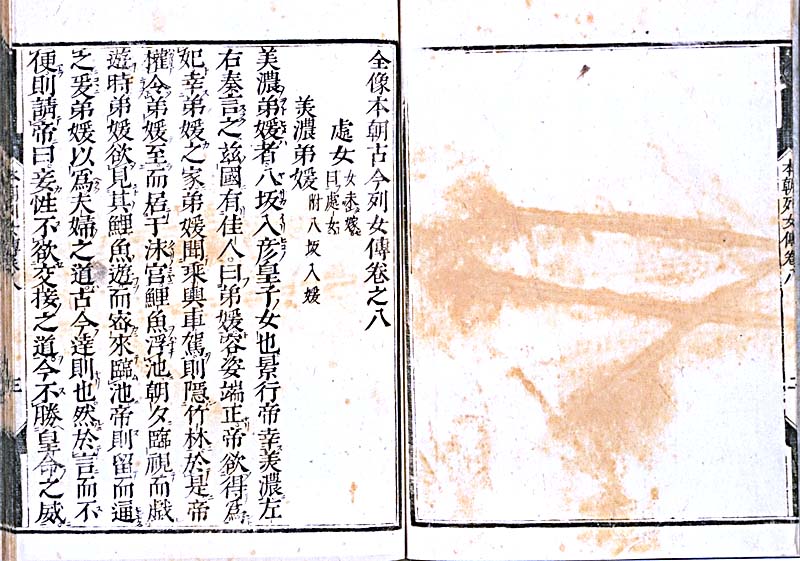 本朝列女傳卷八
二
全像本朝古今列女傳卷之八
處女 女未嫁曰處女
美濃弟媛 附八坂入媛
美濃弟媛者八坂入彦皇子女也景行帝幸美濃左
右奏言之茲國有佳人曰弟媛容姿端正帝欲得爲
妃幸弟媛之家弟媛聞乘輿車駕則隱竹林於是帝
權令弟媛至而居于泳宮鯉魚浮池朝夕臨視而戲
遊時弟媛欲見其鯉魚遊而密來臨池帝則留而通
之爰弟媛以爲夫婦之道古今達則也然於吾而不
便則請帝曰妾性不欲交接之道今不勝皇命之威
本朝列女傳卷八
三